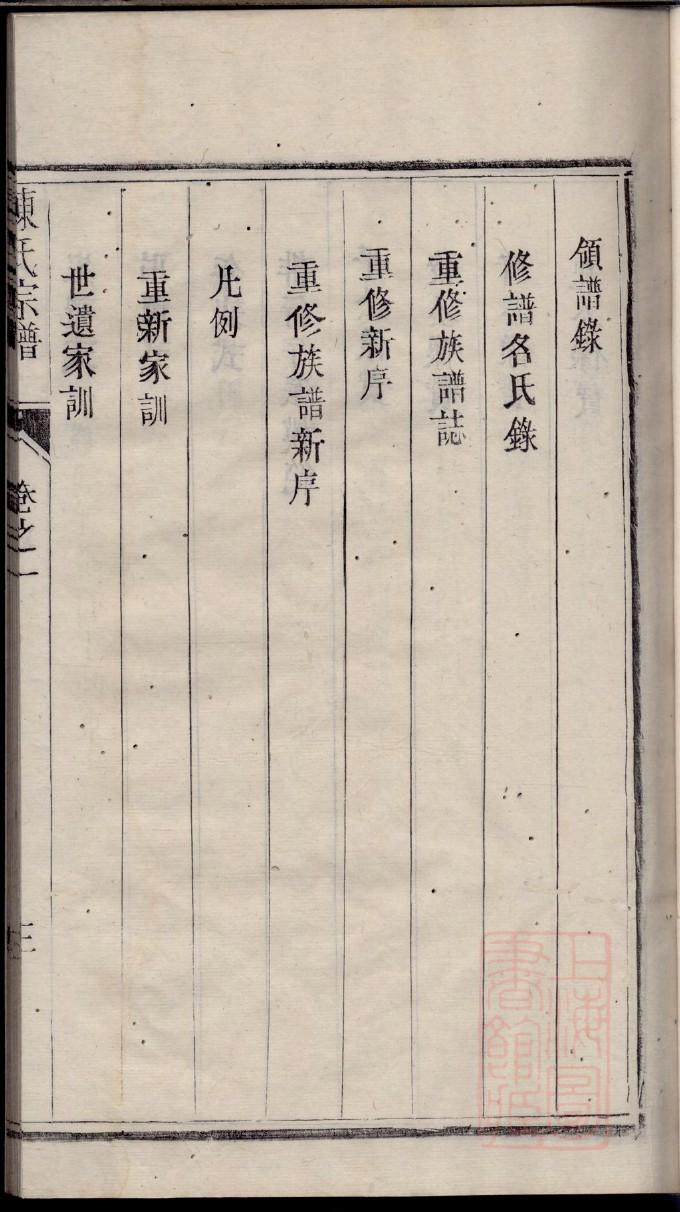 領譜錄
修譜名氏錄
重修族譜誌
重修新序
重修族譜新序
凡例
重新家訓
世遺家訓
陳氏宗譜
卷之一
三
上海圖書館藏